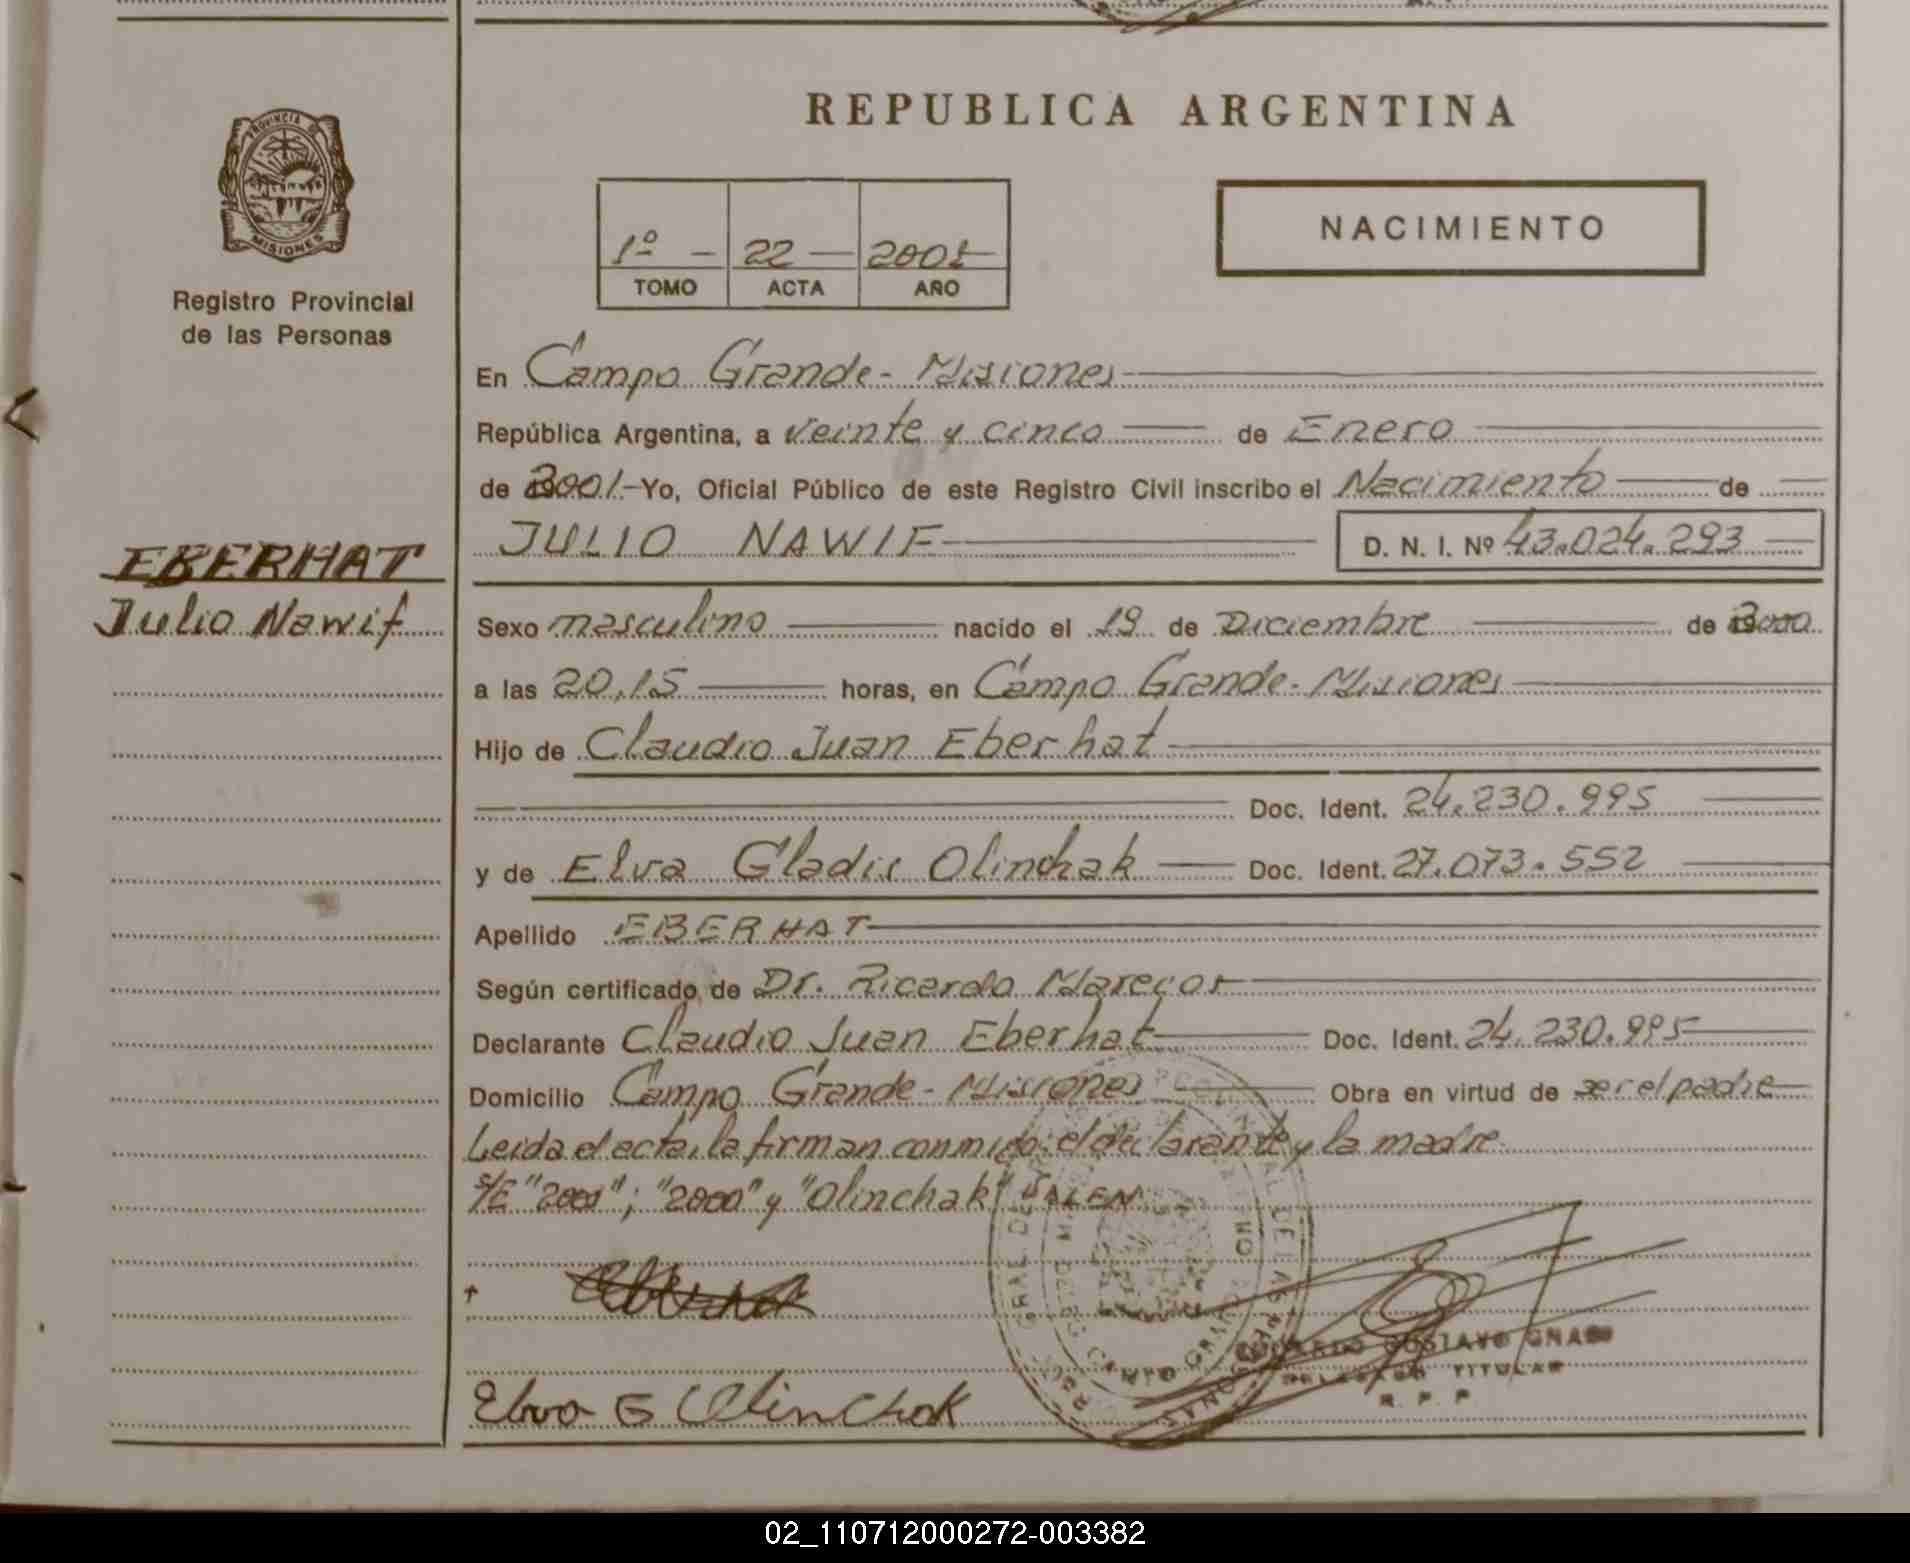 REPUBLICA ARGENTINA
PROVINCIA DE
MISIONES
Registro Provincial
de las Personas
1º - 22 — 2001 —
TOMO ACTA AÑO
NACIMIENTO
En Campo Grande - Misiones
República Argentina, a veinte y cinco de Enero
de 2001.- Yo, Oficial Público de este Registro Civil inscribo el Nacimiento de
JULIO NAWIF D. N. I. Nº 43.024.293
EBERHAT
Julio Nawif
Sexo masculino nacido el 19 de Diciembre de 2000
a las 20,15 horas, en Campo Grande - Misiones
Hijo de Claudio Juan Eberhat
Doc. Ident. 24.230.995
y de Elva Gladis Olinchak Doc. Ident. 27.073.552
Apellido EBERHAT
Según certificado de Dr. Ricardo Marecos
Declarante Claudio Juan Eberhat Doc. Ident. 24.230.995
Domicilio Campo Grande - Misiones Obra en virtud de ser el padre
Leida el acta, la firman conmigo: el declarante y la madre.
S/E "2001"; "2000" y "Olinchak" VALEN.
GUSTAVO
TITULAR
R. P. P.
Elva G Olinchak
02_110712000272-003382